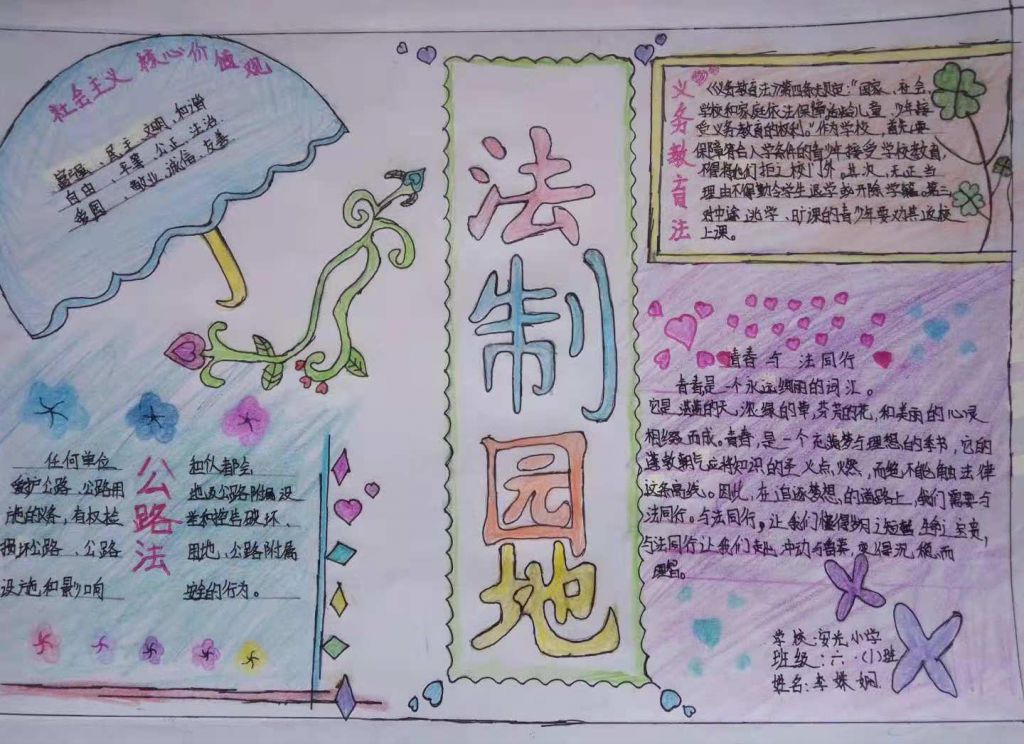 社会主义 核心价值观
富强、民主、文明、和谐
自由、平等、公正、法治
爱国、敬业、诚信、友善
法制园地
义务教育法
《义务教育法》第四条规定：“国家、社会
学校和家庭依法保障适龄儿童、少年接
受义务教育的权利。”作为学校，首先，要
保障符合入学条件的青少年接受学校教育，
不得将他们拒之校门外。其次，无正当
理由不得勒令学生退学或开除学籍。第三
对中途逃学、旷课的青少年要劝其返校
上课。
公路法
任何单位 和个人都会
爱护公路、公路用 地及公路附属设
施的义务，有权检 举和控告破坏、
损坏公路、公路 用地、公路附属
设施和影响 安全的行为。
青春与 法同行
青春是一个永远绚丽的词汇。
它是 的天，浓绿的草，芬芳的花，和美丽的心灵
相缀而成。青春，是一个充满梦与理想的季节，它的
蓬勃朝气应将知识的 火点燃，而绝不能触法律
这条高线。因此，在追逐梦想的道路上，我们需要与
法同行。与法同行，让我们懂得 短暂 宝贵，
与法同行让我们 冲动与 ，变得 而
理智。
学校：安光小学
班级：六·(1)班
姓名：李姝娴